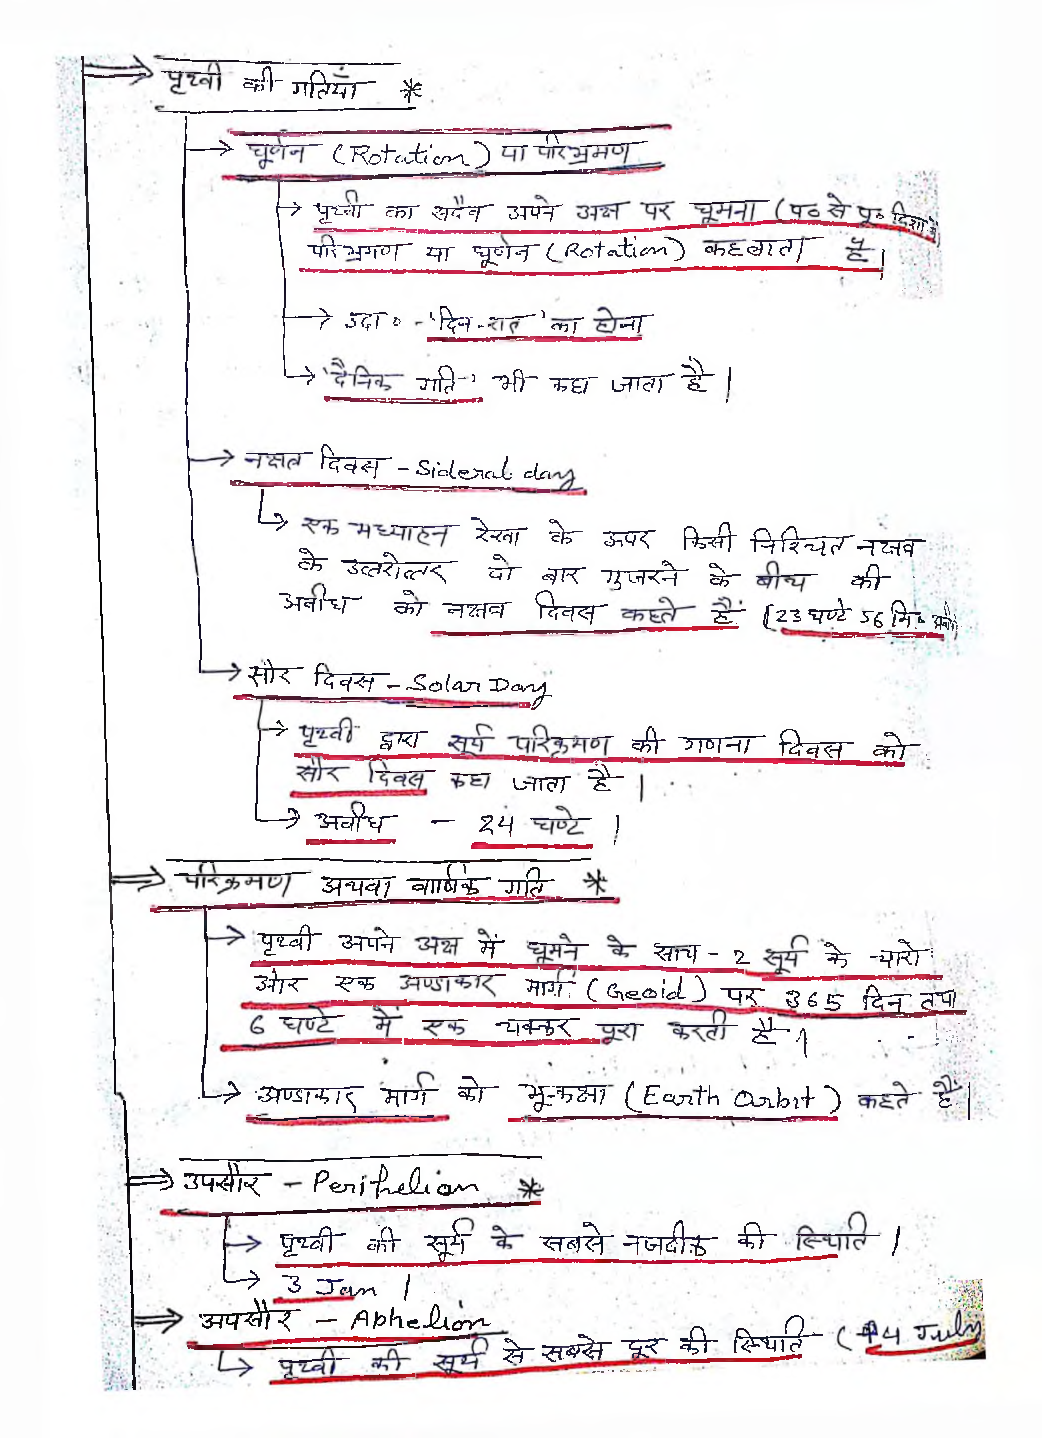 पृथ्वी की गतियाँ *
घूर्णन (Rotation) या परिभ्रमण
पृथ्वी का सदैव अपने अक्ष पर घूमना (प० से पू० दिशा में)
परिभ्रमण या घूर्णन (Rotation) कहलाता है।
उदा० - 'दिन-रात' का होना
'दैनिक गति' भी कहा जाता है।
नक्षत्र दिवस - Sideral day
एक मध्याहन रेखा के ऊपर किसी निश्चित नक्षत्र
के उत्तरोत्तर दो बार गुजरने के बीच की
अवधि को नक्षत्र दिवस कहते हैं (23 घण्टे 56 मि०
सौर दिवस - Solar Day
पृथ्वी द्वारा सूर्य परिक्रमण की गणना दिवस को
सौर दिवस कहा जाता है।
अवधि - 24 घण्टे।
परिक्रमण अथवा वार्षिक गति *
पृथ्वी अपने अक्ष में घूमने के साथ-2 सूर्य के चारो
ओर एक अण्डाकार मार्ग (Geoid) पर 365 दिन तथा
6 घण्टे में एक चक्कर पूरा करती है।
अण्डाकार मार्ग को भू-कक्षा (Earth Orbit) कहते हैं।
उपसौर - Perihelion *
पृथ्वी की सूर्य के सबसे नजदीक की स्थिति।
3 Jan।
अपसौर - Aphelion
पृथ्वी की सूर्य से सबसे दूर की स्थिति (4 July